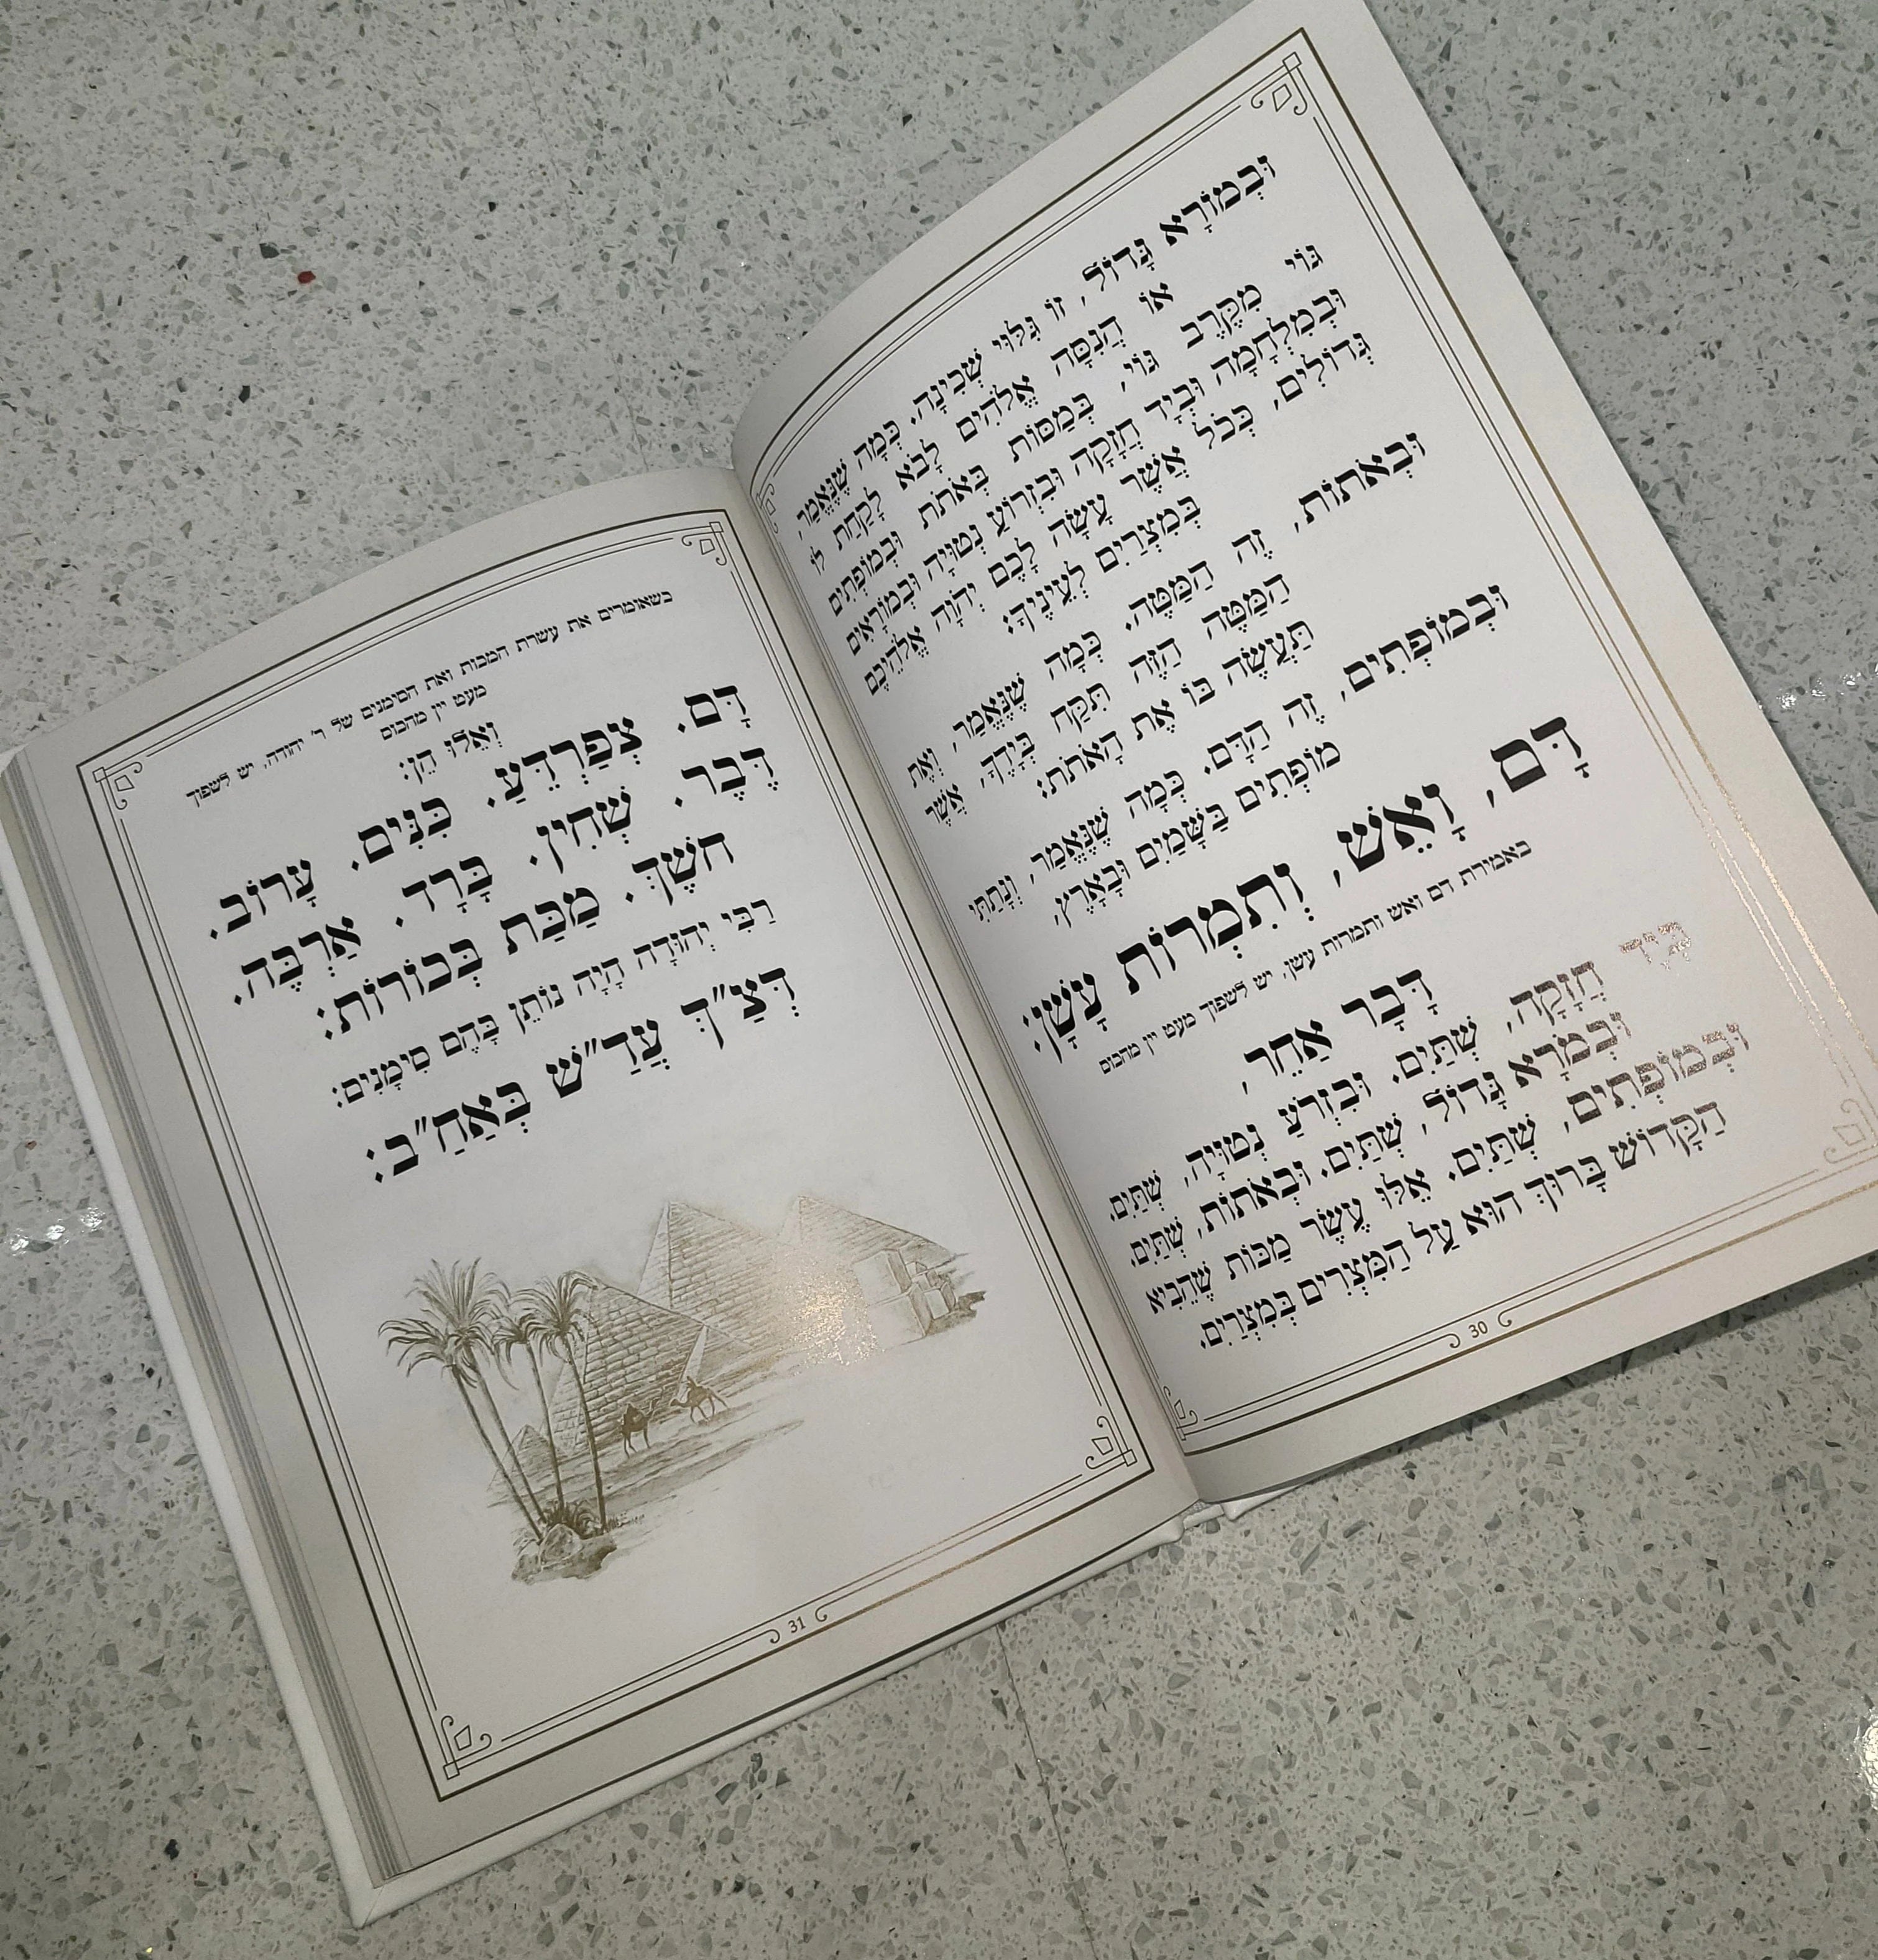 וּבְמוֹרָא גָּדוֹל, זוֹ גִּלּוּי שְׁכִינָה. כְּמָה שֶׁנֶּאֱמַר,
אוֹ הֲנִסָּה אֱלֹהִים לָבֹא לָקַחַת לוֹ
גוֹי מִקֶּרֶב גּוֹי, בְּמַסּוֹת בְּאֹתֹת וּבְמוֹפְתִים
וּבְמִלְחָמָה וּבְיָד חֲזָקָה וּבִזְרוֹעַ נְטוּיָה וּבְמוֹרָאִים
גְּדוֹלִים, כְּכֹל אֲשֶׁר עָשָׂה לָכֶם יְהֹוָה אֱלֹהֵיכֶם
בְּמִצְרַיִם לְעֵינֶיךָ:
וּבְאֹתוֹת, זֶה הַמַּטֶּה. כְּמָה שֶׁנֶּאֱמַר, וְאֶת
הַמַּטֶּה הַזֶּה תִּקַּח בְּיָדֶךָ, אֲשֶׁר
תַּעֲשֶׂה בּוֹ אֶת הָאֹתֹת:
וּבְמוֹפְתִים, זֶה הַדָּם. כְּמָה שֶׁנֶּאֱמַר, וְנָתַתִּי
מוֹפְתִים בַּשָּׁמַיִם וּבָאָרֶץ,
דָּם, וָאֵשׁ, וְתִמְרוֹת עָשָׁן:
באמירת דם ואש ותמרות עשן, יש לשפוך מעט יין מהכוס
דָּבָר אַחֵר,
בְּיָד חֲזָקָה, שְׁתַּיִם. וּבִזְרֹעַ נְטוּיָה, שְׁתַּיִם.
וּבְמֹרָא גָּדוֹל, שְׁתַּיִם. וּבְאֹתוֹת, שְׁתַּיִם.
וּבְמוֹפְתִים, שְׁתַּיִם. אֵלּוּ עֶשֶׂר מַכּוֹת שֶׁהֵבִיא
הַקָּדוֹשׁ בָּרוּךְ הוּא עַל הַמִּצְרִים בְּמִצְרַיִם.
30
כשאומרים את עשרת המכות ואת הסימנים של ר' יהודה, יש לשפוך
מעט יין מהכוס
וְאֵלּוּ הֵן:
דָּם. צְפַרְדֵּעַ. כִּנִּים. עָרוֹב.
דֶּבֶר. שְׁחִין. בָּרָד. אַרְבֶּה.
חשֶׁךְ. מַכַּת בְּכוֹרוֹת:
רַבִּי יְהוּדָה הָיָה נוֹתֵן בָּהֶם סִימָנִים:
דְּצַ"ךְ עֲדַ"שׁ בְּאַחַ"ב:
31